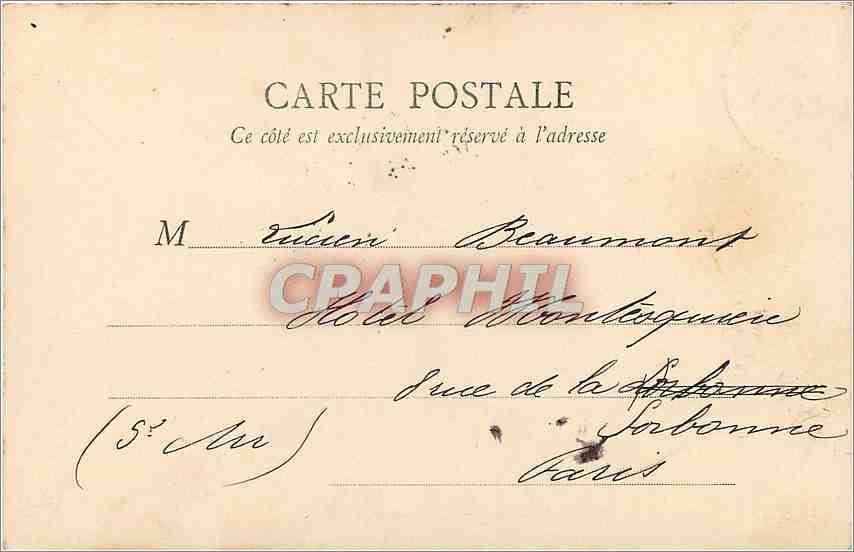 CARTE POSTALE
Ce côté est exclusivement réservé à l'adresse
M Lucien Beaumont
CPRAPHIL
Hotel Montesquieu
8 rue de la Sorbonne
Sorbonne
Paris